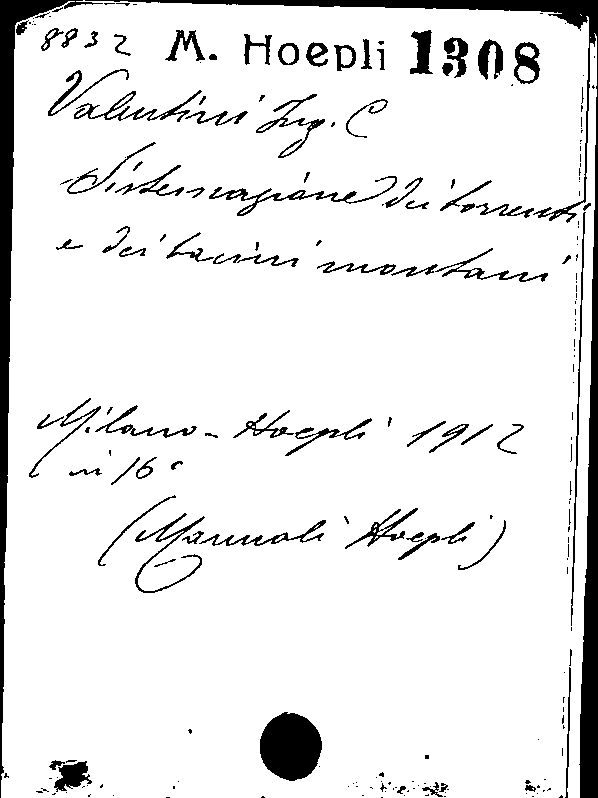 8832 M. Hoepli 1308
Valentini Ing. C
Sistemazione dei torrenti
e dei bacini montani
Milano - Hoepli 1912
in 16°
(Manuali Hoepli)